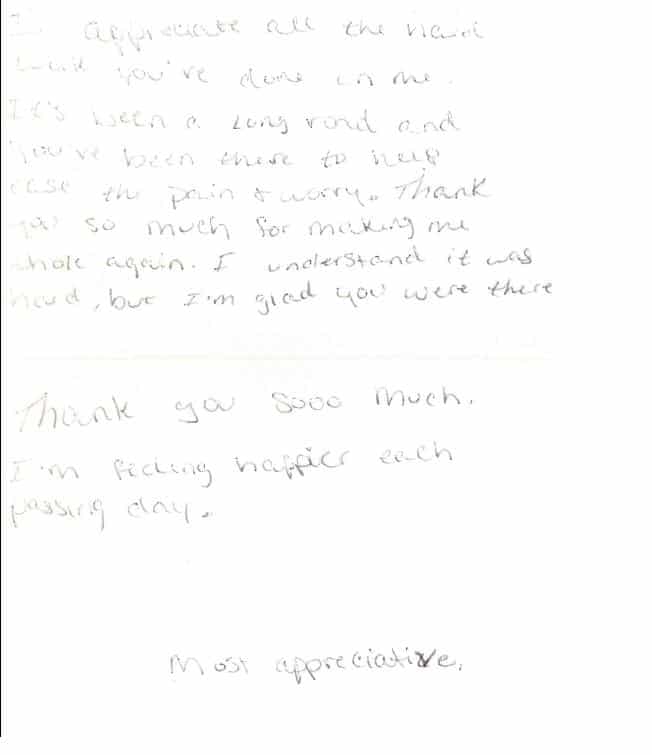 I appreciate all the hard
work you've done on me.
It's been a long road and
you've been there to help
ease the pain & worry. Thank
you so much for making me
whole again. I understand it was
hard, but I'm glad you were there
Thank you sooo much.
I'm feeling happier each
passing day.
Most appreciative,